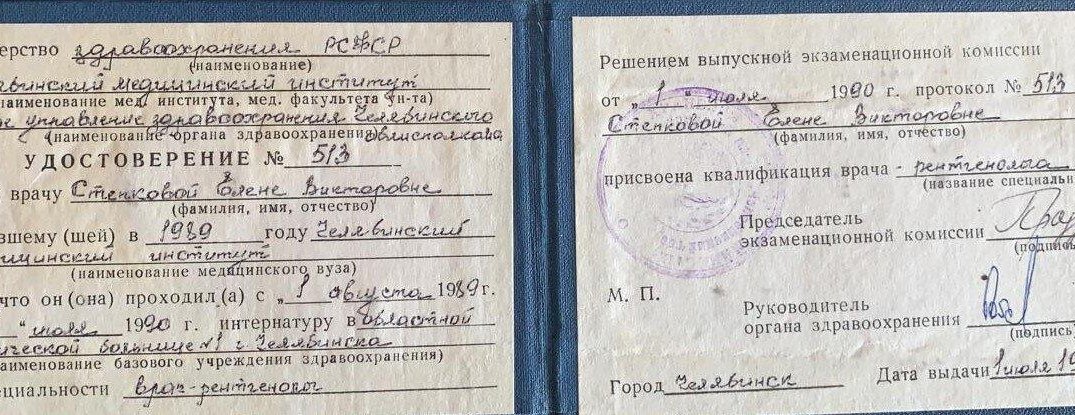 ерство здравоохранения РСФСР
(наименование)
ьинский медицинский институт
наименование мед. института, мед. факультета ун-та)
ое управление здравоохранения Челябинского
(наименование органа здравоохранения) облисполкома
УДОСТОВЕРЕНИЕ № 513
врачу Степковой Елене Викторовне
(фамилия, имя, отчество)
вшему (шей) в 1989 году Челябинский
дицинский институт
(наименование медицинского вуза)
что он (она) проходил (а) с „1 августа 1989 г.
" июля 1990 г. интернатуру в Областной
ической больнице №1 г. Челябинска
наименование базового учреждения здравоохранения)
ециальности врач-рентгенолог
Решением выпускной экзаменационной комиссии
от „1" июля 1990 г. протокол № 513
Степковой Елене Викторовне
(фамилия, имя, отчество)
присвоена квалификация врача - рентгенолога
(название специальн
Председатель
экзаменационной комиссии
(подпись
М. П.
Руководитель
органа здравоохранения
(подпись)
Город Челябинск Дата выдачи 1 июля 19